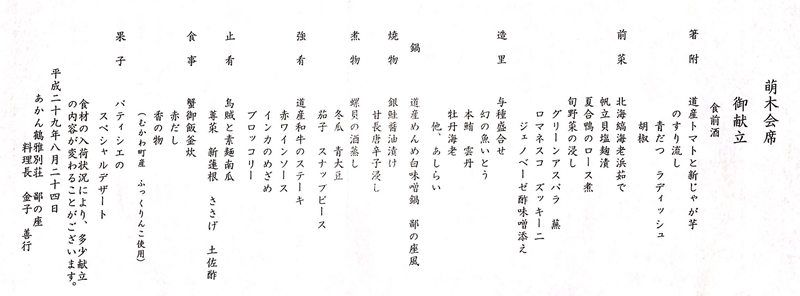 萌木会席
御献立
食前酒
箸附 道産トマトと新じゃが芋
のすり流し
青だつ ラディッシュ
胡椒
前菜 北海縞海老浜茹で
帆立貝塩麹漬
夏合鴨のロース煮
旬野菜の浸し
グリーンアスパラ 蕪
ロマネスコ ズッキーニ
ジェノベーゼ酢味噌添え
造里 与種盛合せ
幻の魚いとう
本鮪 雲丹
牡丹海老
他、あしらい
鍋 道産めんめ白味噌鍋 鄙の座風
焼物 銀鮭醤油漬け
甘長唐辛子浸し
煮物 螺貝の酒蒸し
冬瓜 青大豆
茄子 スナップピース
強肴 道産和牛のステーキ
赤ワインソース
インカのめざめ
ブロッコリー
止肴 烏賊と素麺南瓜
蓴菜 新蓮根 ささげ 土佐酢
食事 蟹御飯釜炊
(むかわ町産 ふっくりんこ使用)
赤だし
香の物
果子 パティシエの
スペシャルデザート
食材の入荷状況により、多少献立
の内容が変わることがございます。
平成二十九年八月二十四日
あかん鶴雅別荘 鄙の座
料理長 金子 善行